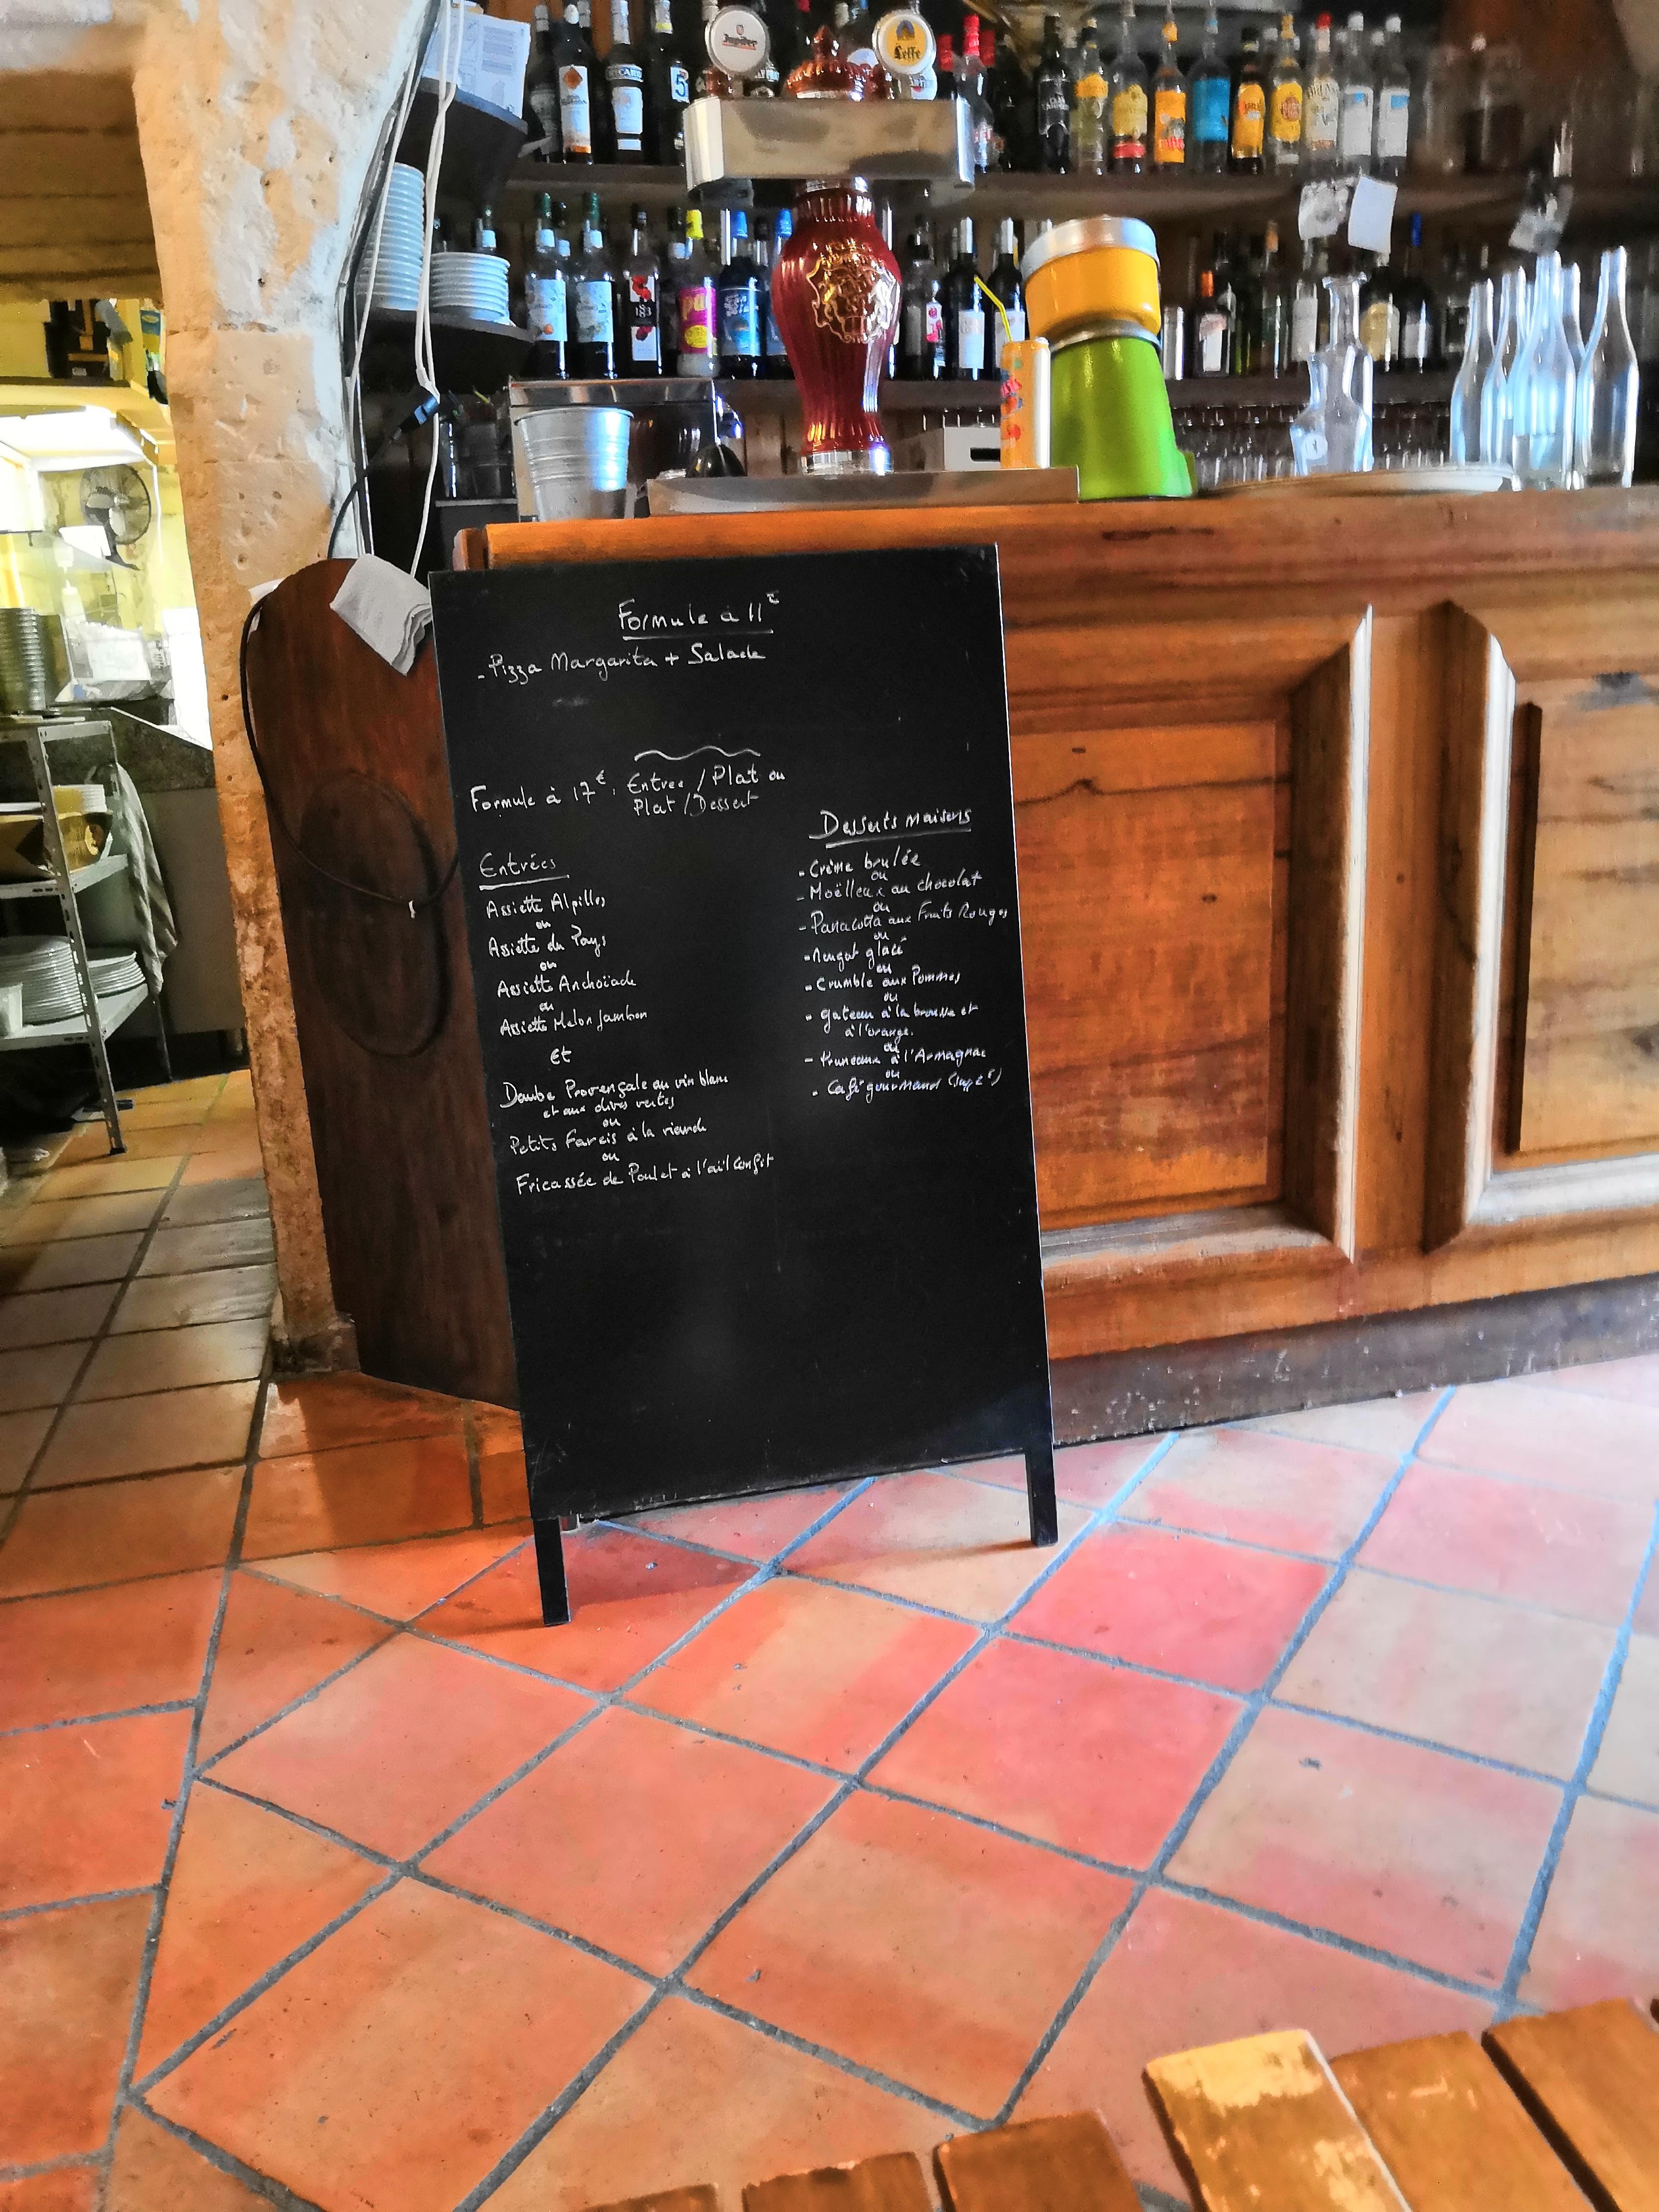 Jupiler
Leffe
Formule à 11€
- Pizza Margarita + Salade
Formule à 17€: Entree / Plat ou
Plat / Dessert
Entrées
Assiette Alpilles
ou
Assiette du Pays
ou
Assiette Anchoïade
ou
Assiette Melon Jambon
et
Daube Provençale au vin blanc
et aux olives vertes
ou
Petits Farcis à la viande
ou
Fricassée de Poulet à l'ail confit
Desserts maisons
- Crème brulée
ou
- Moëlleux au chocolat
ou
- Panacotta aux Fruits Rouges
ou
- Nougat glacé
ou
- Crumble aux Pommes
ou
- gateau à la brousse et
à l'orange.
ou
- Pruneaux à l'Armagnac
ou
- Café gourmand